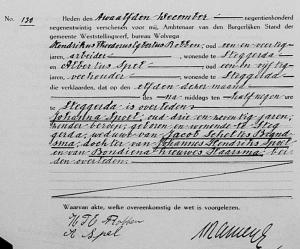 No. 130
Heden den twaalfden December negentienhonderd
negenentwintig verschenen voor mij, Ambtenaar van den Burgerlijken Stand der
gemeente Weststellingwerf, bureau Wolvega
Hendrikus Theodorus Egbertus Robben, oud een en veertig
jaren, arbeider, wonende te Steggerda
en Albertus Spel, oud een en vijftig
jaren, veehouder, wonende te Steggerda
die verklaarden, dat op elfden dezer maand
des namiddags ten half negen ure
te Steggerda is overleden
Johanna Spoel, oud drie en zeventig jaren,
zonder beroep, geboren en wonende te Steg-
gerda, weduwe van Jacob Scholtes Brand-
sma, dochter van Johannes Hendriks Spoel
en van
beiden overleden
Waarvan akte, welke overeenkomstig de wet is voorgelezen.